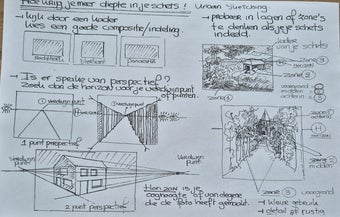 Hoe krijg je meer diepte in je schets!
Urban Sketching.
→ kijk door een kader
kies een goede compositie/indeling
Rechthoek
Vierkant
Panorama
→ probeer in lagen of zone's
te denken als je schets
indeeld.
kader
van je schets
→ Is er sprake van perspectief?
Zoek dan de horizon voor je verdwijnpunt
of punten.
zone ①
zone ②
zone ③
voorgrond
midden
achter
① verdwijnpunt
verdwijnpunt
H
1 punt perspectief
verdwijn
punt
Verdwijn
punt
2 punt perspectief
Horizon is je
ooghoogte of van degene
die de foto heeft gemaakt.
H
zone ①
achter
zone ②
midden
zone ③ voorgrond
→ kleur gebruik
→ detail of rustig